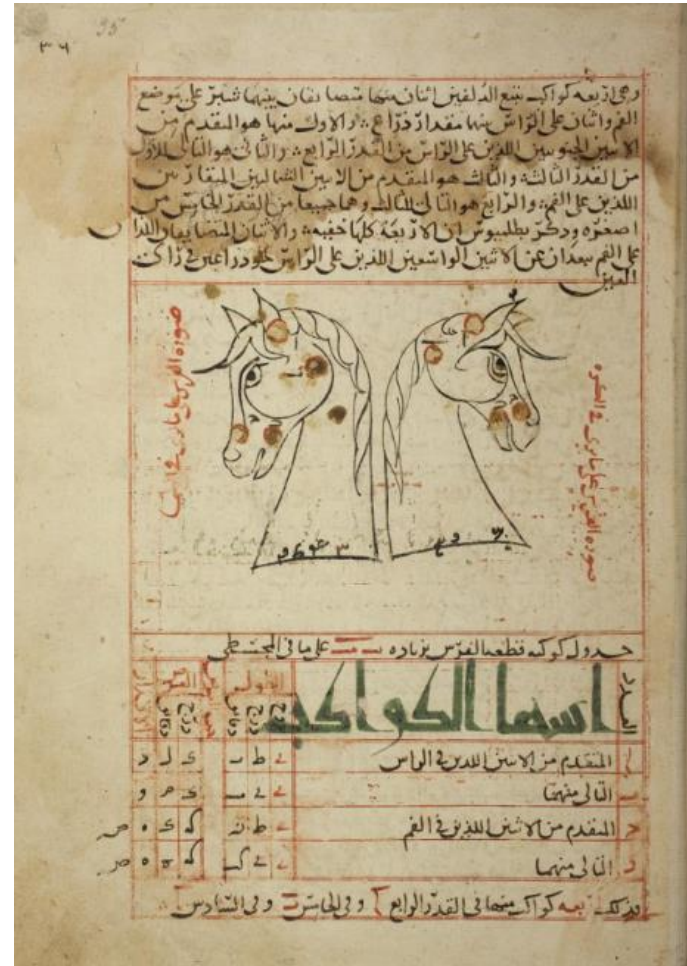 35
٣٦
وهى اربعه كواكب تتبع الدلفين اثنان منها متضايقان بينهما شبر على موضع
الفم واثنان على الراس بينهما مقدار ذراع والاول منها هو المقدم من
الاثنين الجنوبيين اللذين على الراس من القدر الرابع والثانى هو التالى للاول
من القدر الثالث والثالث هو المتقدم من الاثنين الشماليين المتقاربين
اللذين على الفم والرابع هو التالى للثالث وهما جميعا من القدر الخامس من
اصغره وذكر بطلميوس ان الاربعة كلها خفيه والاثنان المتضايقان اللذان
على الفم يبعدان عن الاثنين الواسعين اللذين على الراس نحو ذراعين فى راى
العين
صورة الفرس على ما يرى فى السما
صورة الفرس على ما يرى فى الكره
جدول كوكبه قطعه الفرس بزياده على ما فى المجسطى
العدد
اسما الكواكب
الطول
العرض
درج
دقايق
المتقدم من الاثنين اللذين فى الراس
التالى منهما
المتقدم من الاثنين اللذين فى الفم
التالى منهما
فذلك اربعه كواكب منها فى القدر الرابع وفى الخامس وفى السادس